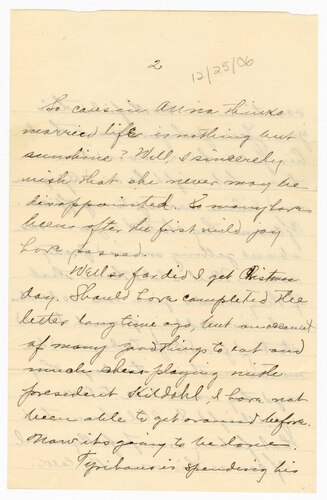 2
12/25/06
So cousin Anna thinks
married life is nothing but
sunshine? Well, I sincerely
wish that she never may be
disappointed. So many have
been after the first wild joy
have passed.
Well so far did I get Christmas
day. Should have completed the
letter long time ago, but on account
of many good things to eat and
much chess playing with
president Kildahl, I have not
been able to get around before.
Now its going to be done.
is spending his